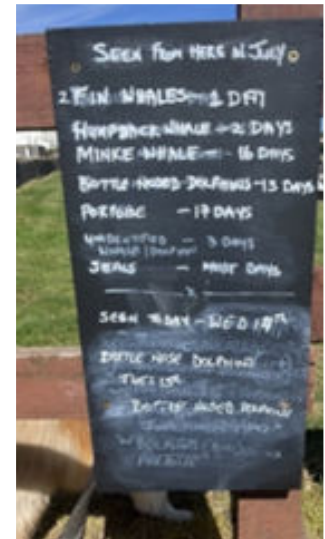 SEEN FROM HERE IN JULY
2 FIN WHALES - 1 DAY
HUMPBACK WHALE - 2 DAYS
MINKE WHALE - 16 DAYS
BOTTLE NOSED DOLPHINS - 13 DAYS
PORPOISE - 17 DAYS
UNIDENTIFIED - 3 DAYS
WHALE/DOLPHIN
SEALS - MOST DAYS
SEEN TODAY - WED
BOTTLE NOSE DOLPHINS
TUES 15th
BOTTLE NOSED DOLPHINS